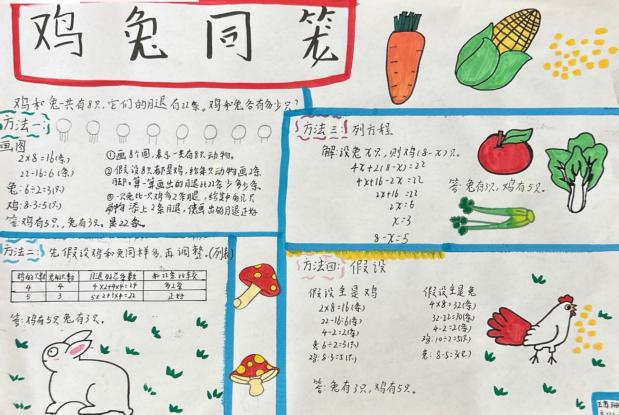 鸡兔同笼
鸡和兔一共有8只,它们的腿有22条。鸡和兔各有多少只?
方法一:
画图
2×8=16(条)
22-16=6(条)
兔:6÷2=3(只)
鸡:8-3=5(只)
答:鸡有5只,兔有3只。
①画8个圆,表示一共有8只动物。
②假设8只都是鸡,给每只动物画2条
腿。算一算画出的腿比22条少多少条。
③一只兔比一只鸡多2条腿,给其中的几只
动物添上2条腿,使画出的腿正好
是22条。
方法二:先假设鸡和兔同样多,再调整。(列表)
4 4 4×2+4×4=24 多2条
5 3 5×2+3×4=22 正好
答:鸡有5只兔有3只。
方法三:列方程
解:设兔x只,则鸡(8-x)只。
4x+2(8-x)=22
4x+16-2x=22
2x+16=22
2x=6
x=3
8-x=5
答:兔有3只,鸡有5只。
方法四:假设
假设全是鸡
2×8=16(条)
22-16=6(条)
4-2=2(条)
兔:6÷2=3(只)
鸡:8-3=5(只)
假设全是兔
4×8=32(条)
32-22=10(条)
4-2=2(条)
鸡:10÷2=5(只)
兔:8-5=3(只)
答:兔有3只,鸡有5只。